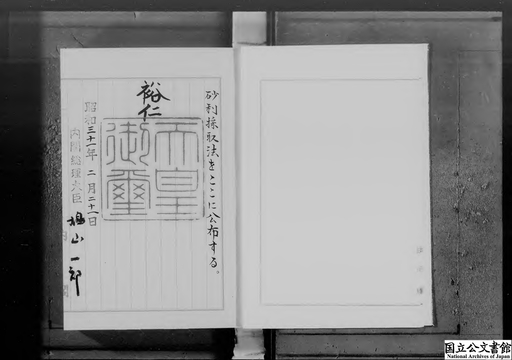 砂利採取法をここに公布する。
裕仁
天皇
御璽
昭和三十一年二月二十一日
内閣総理大臣
鳩山一郎
国立公文書館
National Archives of Japan